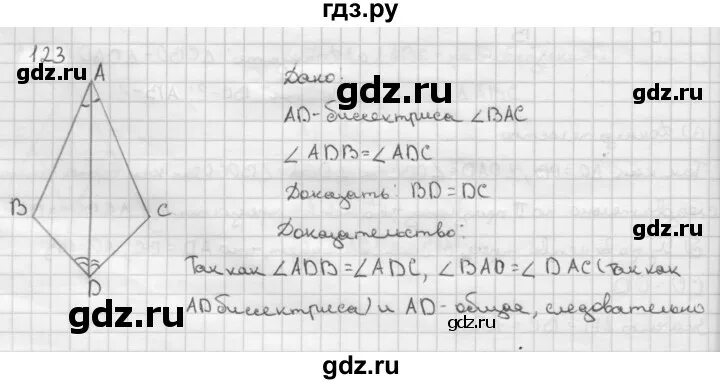 гдз.ру
123
gdz.ru
gdz.ru
A
Дано:
gdz.ru
gdz.ru
AD-биссектриса ∠BAC
∠ADB=∠ADC
Доказать: BD=DC
gdz.ru
B
C
Доказательство:
gdz.ru
D
Так как ∠ADB=∠ADC, ∠BAD=∠DAC (так как
AD биссектриса) и AD-общая, следовательно
gdz.ru
gdz.ru
gdz.ru